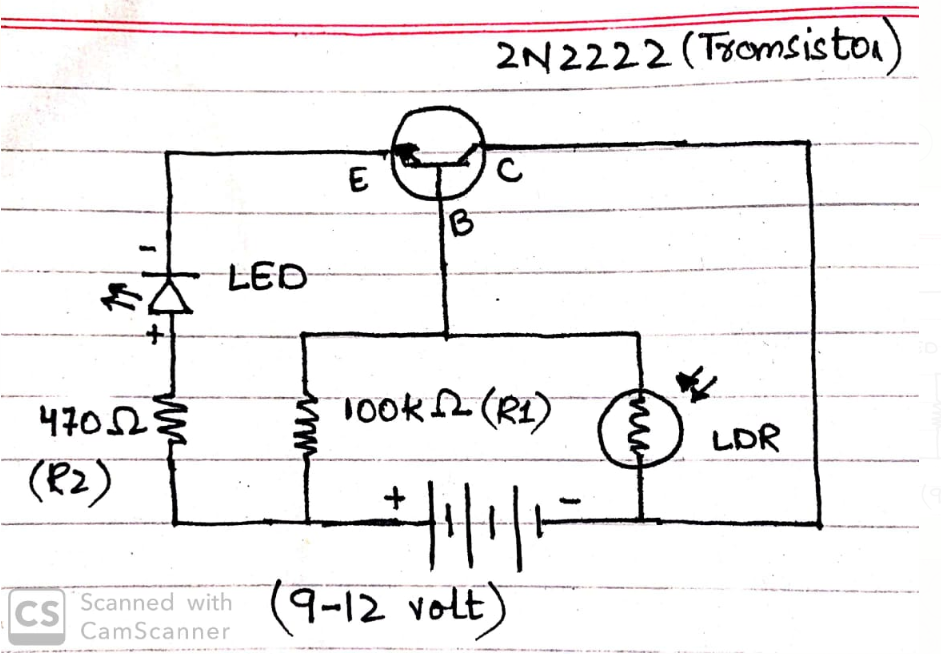 2N2222 (Tromsistor)
E
C
B
-
LED
+
470Ω
(R2)
100kΩ (R1)
LDR
+
-
(9-12 volt)
CS
Scanned with
CamScanner